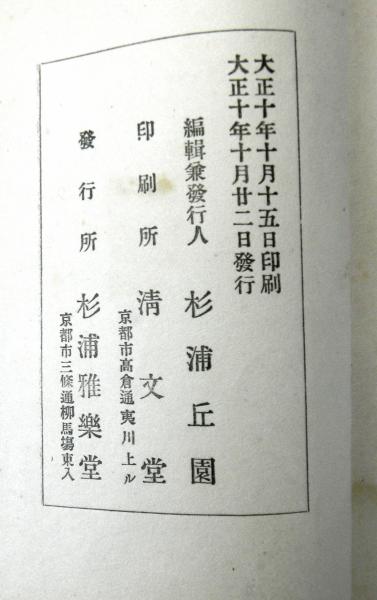 大正十年十月十五日印刷
大正十年十月廿二日發行
編輯兼發行人　杉浦丘園
印刷所　淸文堂
京都市高倉通夷川上ル
發行所　杉浦雅樂堂
京都市三條通柳馬塲東入